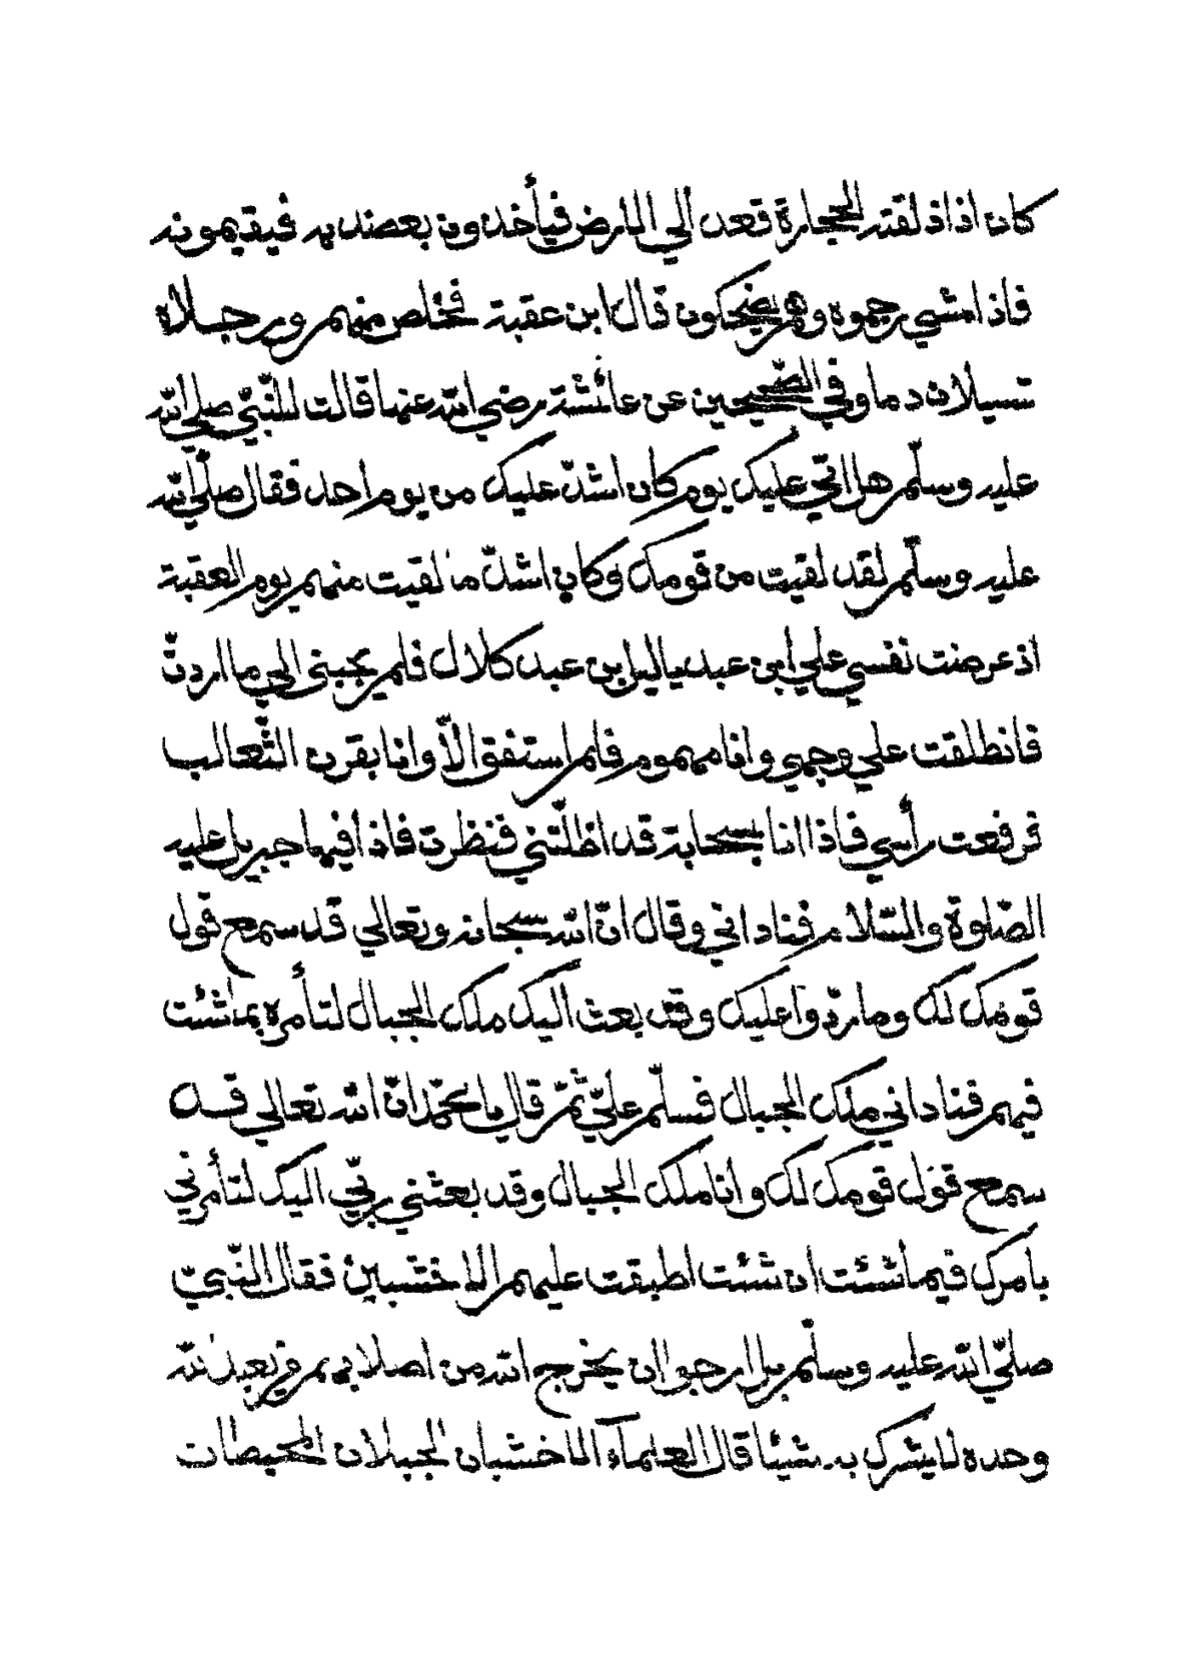 كان اذا اذلقته الحجارة قعد الي الارض فيأخذون بعضديه فيقيمونه
فاذا مشي رجموه وهم يضحكون قال ابن عقبة فخلص منهم ورجلاه
تسيلان دما وفي الصّحيحين عن عائشة رضي الله عنها قالت للنّبيّ صلي الله
عليه وسلّم هل اتي عليك يوم كان اشدّ عليك من يوم احد فقال صلّي الله
عليه وسلّم لقد لقيت من قومك وكان اشدّ ما لقيت منهم يوم العقبة
اذ عرضت نفسي علي ابن عبد ياليل بن عبد كلال فلم يجبنى الي ما اردتّ
فانطلقت علي وجهي وانا مهموم فلم استفق الّا وانا بقرن الثّعالب
فرفعت رأسي فاذا انا بسحابة قد اظلّتني فنظرت فاذا فيها جبريل عليه
الصّلوة والسّلام فناداني وقال انّ الله سبحانه وتعالي قد سمع قول
قومك لك وما ردّوا عليك وقد بعث اليك ملك الجبال لتأمره بما شئت
فيهم فناداني ملك الجبال فسلّم عليّ ثمّ قال يا محمّد انّ الله تعالي قد
سمع قول قومك لك وانا ملك الجبال وقد بعثني ربّي اليك لتأمرني
بامرك فيما شئت ان شئت اطبقت عليهم الاخشبين فقال النّبيّ
صلّي الله عليه وسلّم بل ارجوا ان يخرج الله من اصلابهم من يعبد الله
وحده لا يشرك به شيئا قال العلمآء الاخشبان الجبلان المحيطان